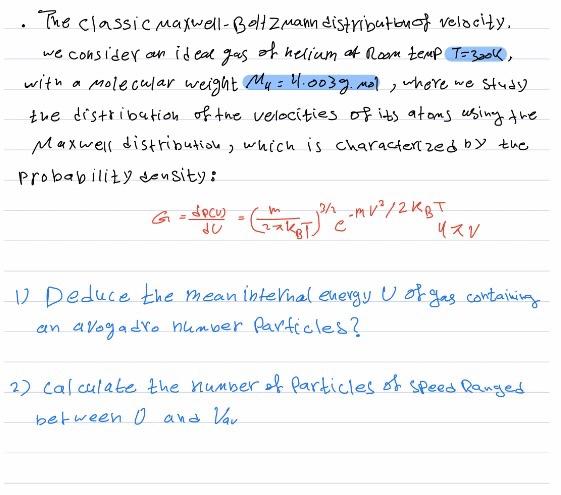 . The classic Maxwell-Boltzmann distribution of velocity.
we consider an ideal gas of helium at Room temp T=300K,
with a molecular weight M4 = 4.003g.mol, where we study
the distribution of the velocities of its atoms using the
Maxwell distribution, which is characterized by the
probability density:
G = dp(v)/dv = (m/2πKBT)^3/2 e^-mv²/2KBT 4πv
1) Deduce the mean internal energy U of gas containing
an avogadro number particles?
2) calculate the number of particles of speed Ranged
between 0 and Vav